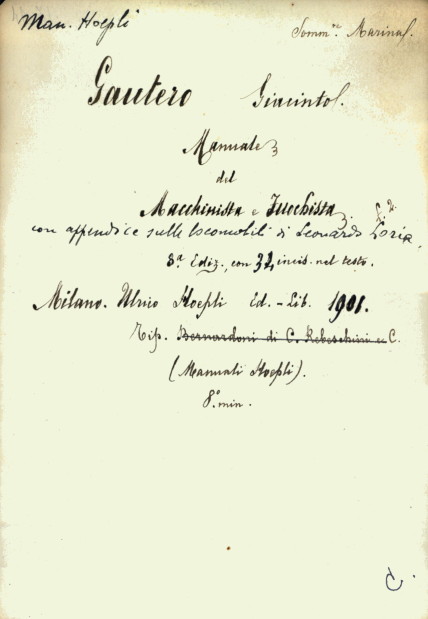 Man. Hoepli
Somm.re Marina
Gautero Giacinto
Manuale
del
Macchinista e Fuochista
con appendice sulle locomobili di Leonardo Loria,
8.a Ediz., con 32 incis. nel testo.
Milano. Ulrico Hoepli Ed.-Lib. 1901.
Tip. Bernardoni di C. Rebeschini e C.
(Manuali Hoepli).
8.o min.
C.